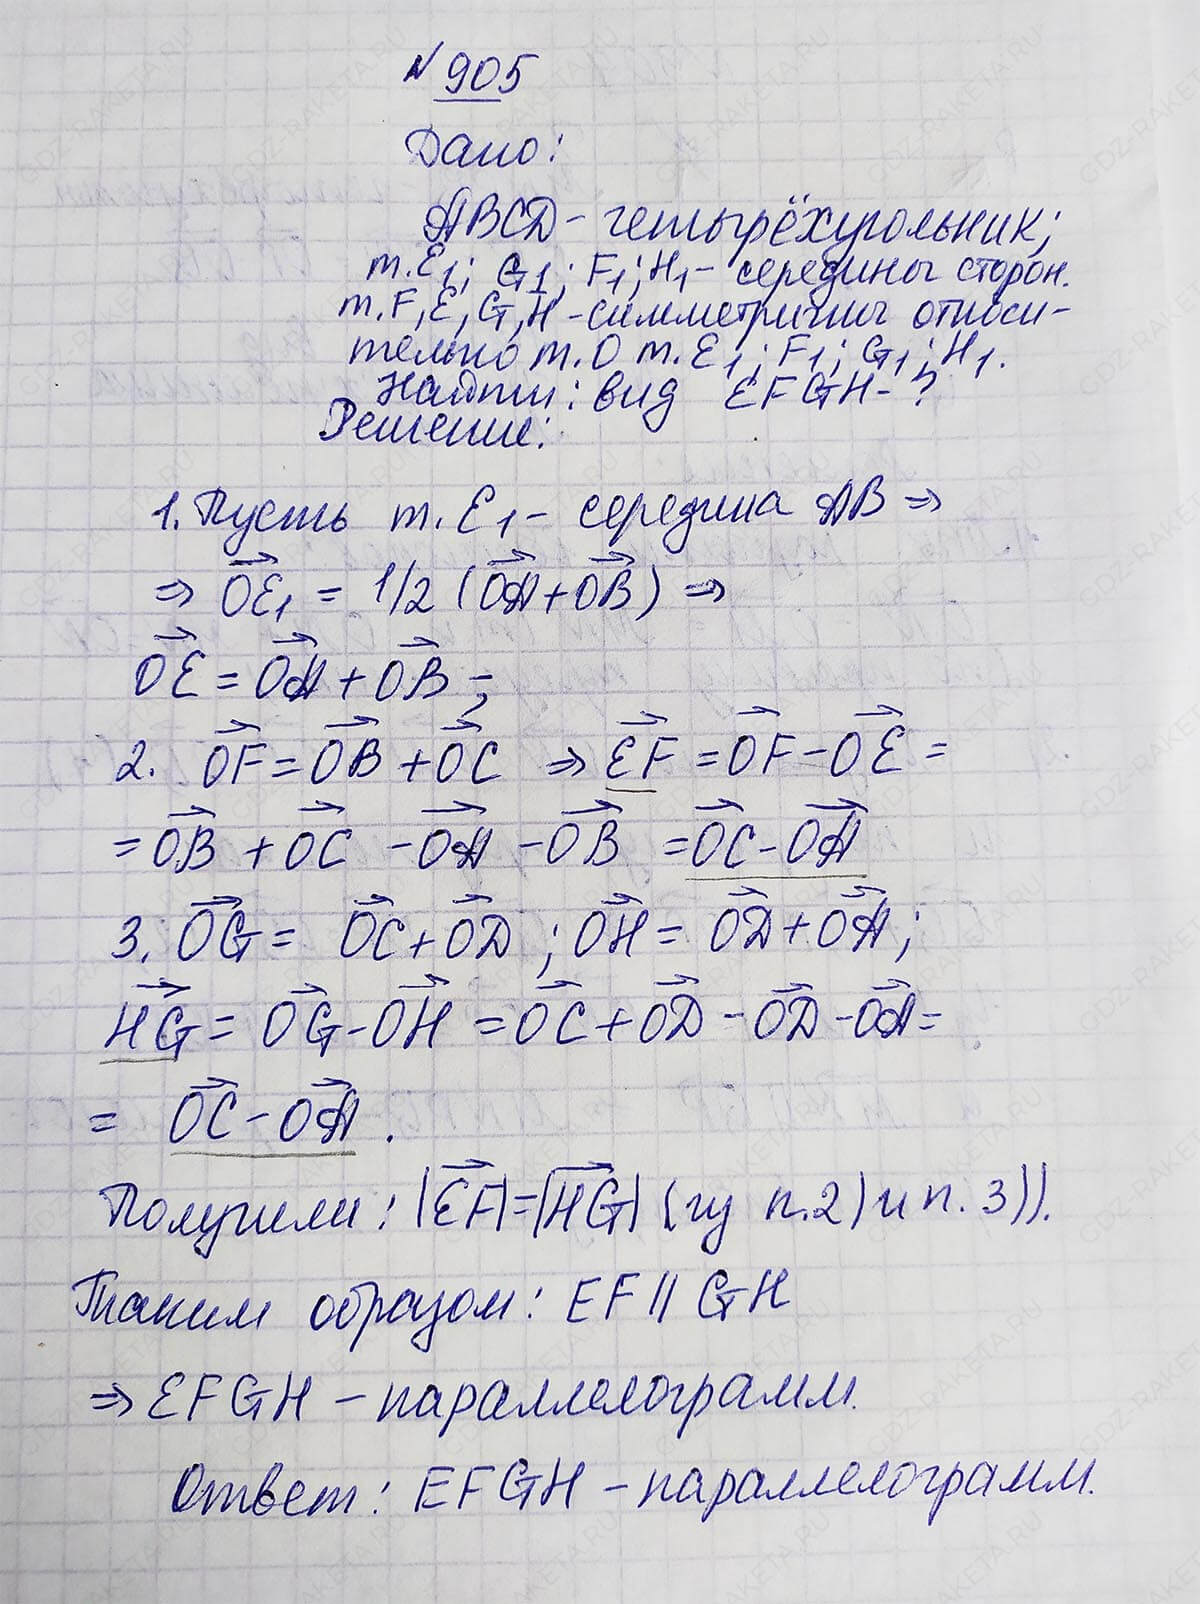 № 905
Дано:
ABCD - четырёхугольник;
т. E₁; G₁; F₁; H₁ - середины сторон.
т. F, E, G, H - симметричны относи-
тельно т. O т. E₁; F₁; G₁; H₁.
Найти: вид EFGH - ?
Решение:
1. Пусть т. E₁ - середина AB ⇒
⇒ →OE₁ = 1/2 (→OA + →OB) ⇒
→OE = →OA + →OB;
2. →OF = →OB + →OC ⇒ →EF = →OF - →OE =
= →OB + →OC - →OA - →OB = →OC - →OA
3. →OG = →OC + →OD ; →OH = →OD + →OA ;
→HG = →OG - →OH = →OC + →OD - →OD - →OA =
= →OC - →OA .
Получили: |→EF| = |→HG| (из п. 2) и п. 3)).
Таким образом: EF || GH
⇒ EFGH - параллелограмм.
Ответ: EFGH - параллелограмм.
GDZ-RAKETA.RU